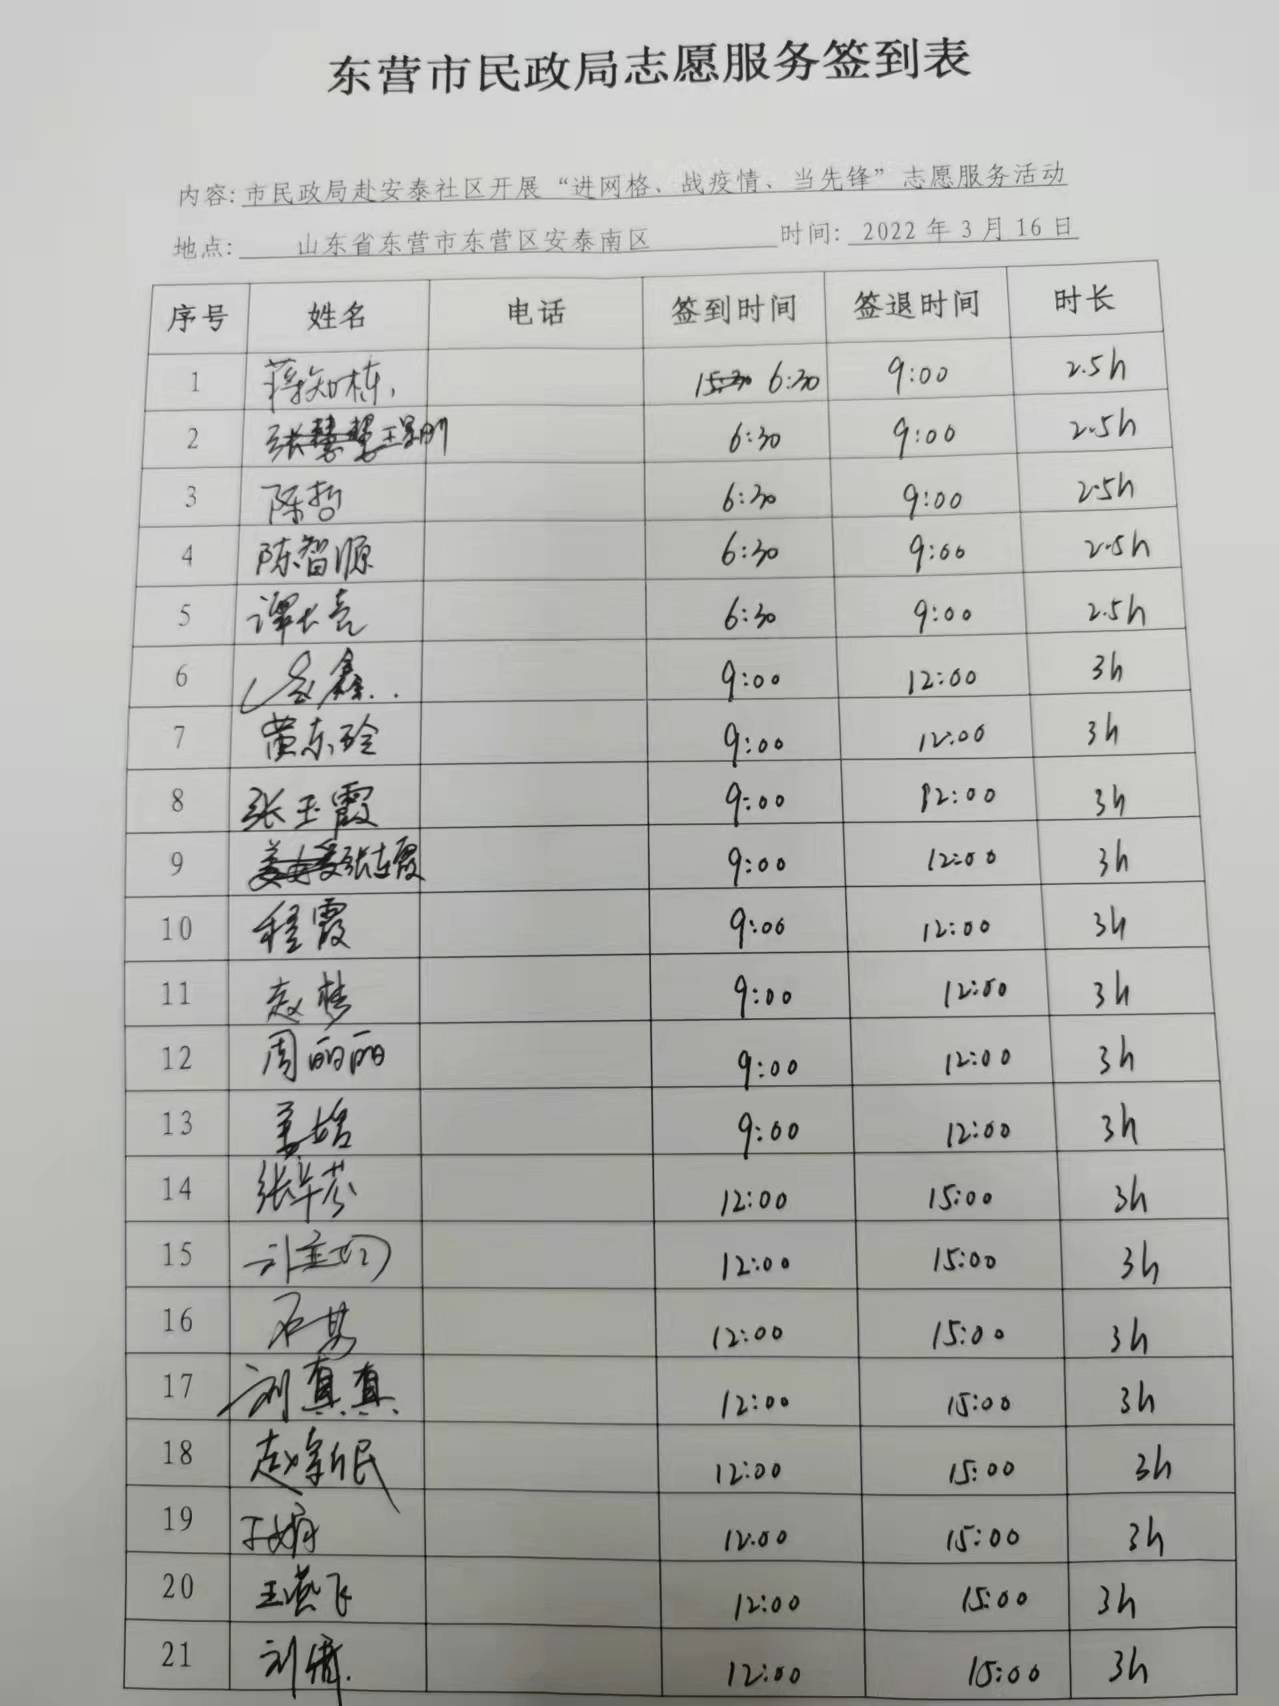 东营市民政局志愿服务签到表
内容: 市民政局赴安泰社区开展“进网格、战疫情、当先锋”志愿服务活动
地点: 山东省东营市东营区安泰南区 时间: 2022年3月16日
序号 姓名 电话 签到时间 签退时间 时长
1 蒋知栋 6:30 9:00 2.5h
2 6:30 9:00 2.5h
3 陈哲 6:30 9:00 2.5h
4 陈智源 6:30 9:00 2.5h
5 谭长亮 6:30 9:00 2.5h
6 鑫 9:00 12:00 3h
7 黄东玲 9:00 12:00 3h
8 张玉霞 9:00 12:00 3h
9 张连霞 9:00 12:00 3h
10 程霞 9:00 12:00 3h
11 赵梦 9:00 12:00 3h
12 周丽丽 9:00 12:00 3h
13 9:00 12:00 3h
14 张华芬 12:00 15:00 3h
15 12:00 15:00 3h
16 12:00 15:00 3h
17 刘真真 12:00 15:00 3h
18 赵新民 12:00 15:00 3h
19 于娟 12:00 15:00 3h
20 王燕飞 12:00 15:00 3h
21 刘倩 12:00 15:00 3h